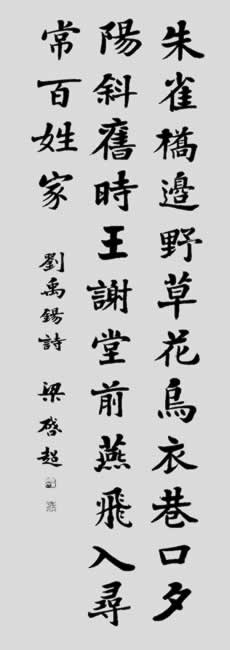 朱雀橋邊野草花烏衣巷口夕
陽斜舊時王謝堂前燕飛入尋
常百姓家
劉禹錫詩 梁啓超